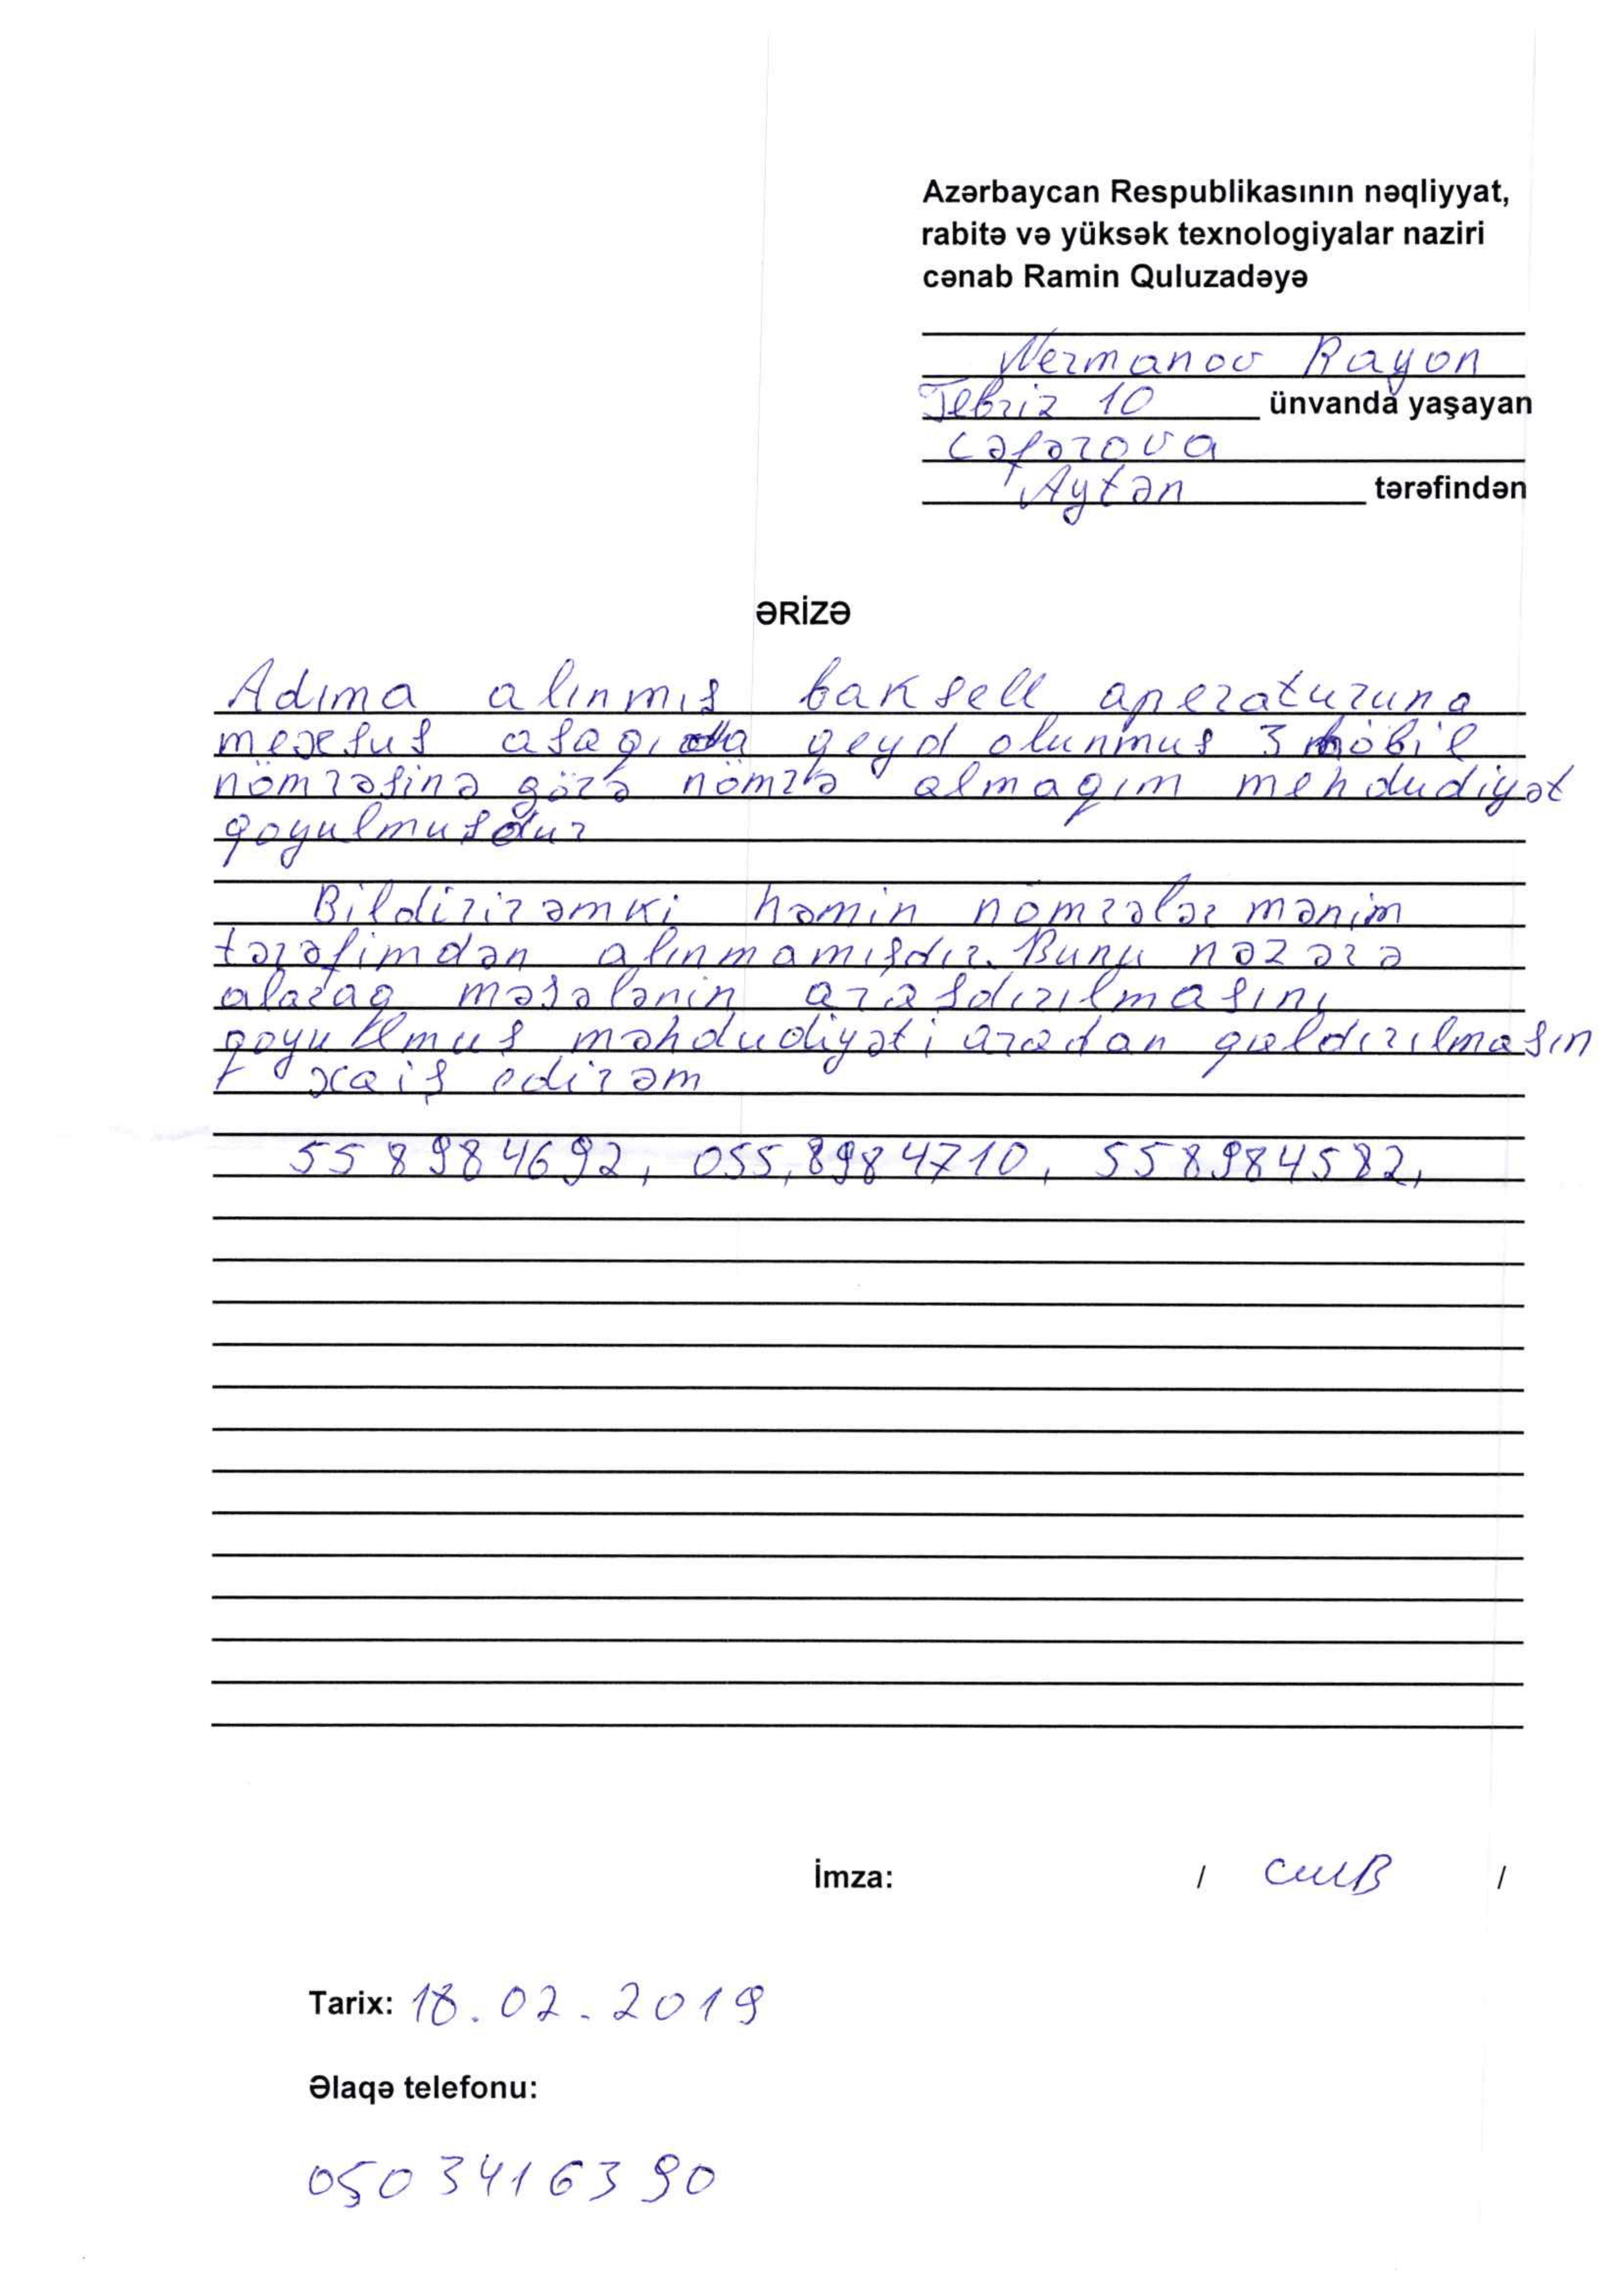 Azərbaycan Respublikasının nəqliyyat,
rabitə və yüksək texnologiyalar naziri
cənab Ramin Quluzadəyə
Nermanov Rayon
Tebriz 10 ünvanda yaşayan
Cəfərova
Aytən tərəfindən
ƏRİZƏ
Adıma alınmış baksell aperaturuna
mexsus aşagıda qeyd olunmus 3 mobil
nömrəsinə görə nömrə almagım mehdudiyət
qoyulmusdur
Bildirirəmki həmin nömrələr mənim
tərəfimdən alınmamışdır. Bunu nəzərə
alaraq məsələnin araşdırılmasını
qoyulmus məhdudiyəti aradan qaldırılmasın
xaiş edirəm
558984692, 055,8984710, 558984582,
İmza: / /
Tarix: 18.02.2019
Əlaqə telefonu:
0503416390